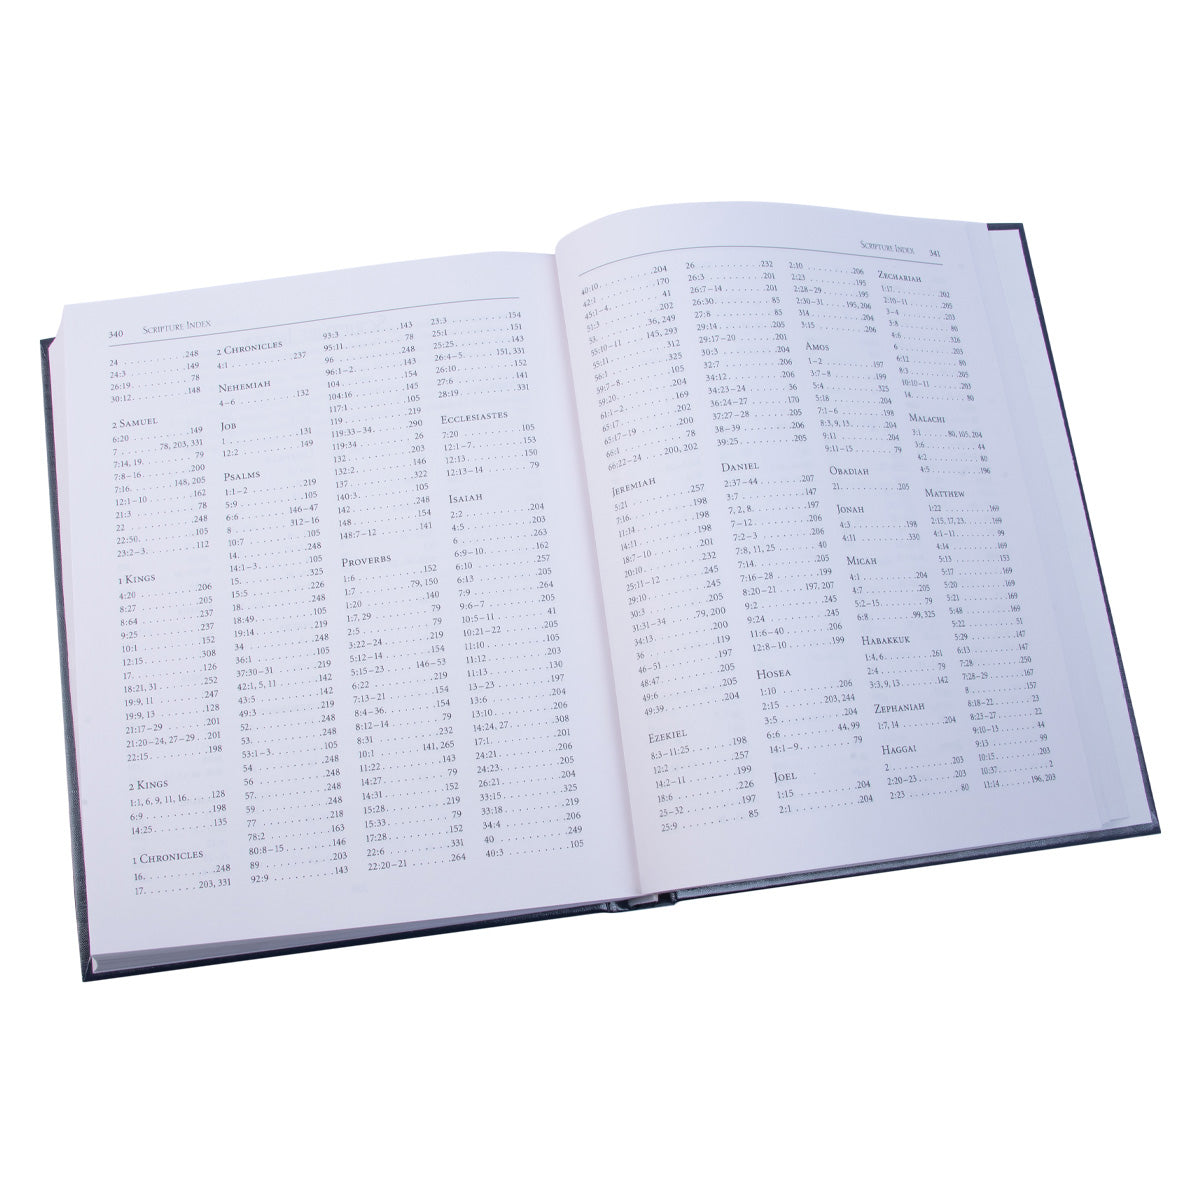 340 Scripture Index
24 . . . 248
24:3 . . . 149
26:19 . . . 78
30:12 . . . 148
2 Samuel
6:20 . . . 149
7 . . . 78, 203, 331
7:14, 19. . . 79
7:8–16. . . 200
7:16. . . 148, 205
12:1–10 . . . 162
21:3 . . . 78
22 . . . 248
22:50. . . 105
23:2–3. . . 112
1 Kings
4:20 . . . 206
8:27 . . . 205
8:64 . . . 237
9:25 . . . 237
10:1 . . . 152
12:15 . . . 308
17. . . 126
18:21, 31 . . . 252
19:9, 11 . . . 247
19:9, 13 . . . 128
21:17–29 . . . 201
21:20–24, 27–29 . . 201
22:15 . . . 198
2 Kings
1:1, 6, 9, 11, 16. . . 128
6:9 . . . 198
14:25 . . . 135
1 Chronicles
16. . . 248
17. . . 203, 331
2 Chronicles
4:1 . . . 237
Nehemiah
4–6 . . . 132
Job
1 . . . 131
12:2 . . . 149
Psalms
1:1–2 . . . 219
5:9 . . . 105
6:6 . . . 146–47
8 . . . 312–16
10:7 . . . 105
14. . . 248
14:1–3 . . . 105
15. . . 325
15:5 . . . 226
18. . . 248
18:49 . . . 105
19:14 . . . 219
34 . . . 248
36:1 . . . 105
37:30–31 . . . 219
42:1, 5, 11 . . . 142
43:5 . . . 142
49:3 . . . 219
52. . . 248
53. . . 248
53:1–3 . . . 105
54 . . . 248
56 . . . 248
57. . . 248
59 . . . 248
77 . . . 218
78:2 . . . 163
80:8–15 . . . 146
89 . . . 203
92:9 . . . 143
93:3 . . . 143
95:11 . . . 78
96 . . . 248
96:1–2 . . . 143
104 . . . 154
104:16 . . . 145
117:1 . . . 105
119 . . . 219
119:33–34. . . 290
119:34 . . . 26
132 . . . 203
132:2 . . . 146
137 . . . 322
140:3 . . . 105
142 . . . 248
148 . . . 154
148:7–12 . . . 141
Proverbs
1:6 . . . 152
1:7 . . . 79, 150
1:20 . . . 140
1:7, 29 . . . 79
2:5 . . . 79
3:22–24 . . . 219
5:12–14 . . . 154
5:15–23 . . . 146–53
6:22 . . . 219
7:13–21 . . . 154
8:4–36. . . 154
8:12–14 . . . 79
8:31 . . . 232
10:1 . . . 141, 265
11:22 . . . 143
14:27 . . . 79
14:31 . . . 152
15:28 . . . 219
15:33 . . . 79
17:28 . . . 152
22:6 . . . 331
22:20–21 . . . 264
23:3 . . . 154
25:1 . . . 151
25:25 . . . 143
26:4–5. . . 151, 331
26:10 . . . 152
27:6 . . . 141
28:19 . . . 331
Ecclesiastes
7:20 . . . 105
12:1–7. . . 153
12:13 . . . 150
12:13–14 . . . 79
Isaiah
2:2 . . . 204
4:5 . . . 203
6 . . . 263
6:9–10 . . . 162
6:10 . . . 257
6:13 . . . 205
7:9 . . . 264
9:6–7 . . . 205
10:5–11 . . . 41
10:21–22 . . . 205
11:10 . . . 105
11:12 . . . 203
11:13 . . . 130
13–23 . . . 197
13:6 . . . 204
13:10 . . . 206
14:24, 27 . . . 308
17:1 . . . 201
24:21 . . . 206
24:23 . . . 205
26:21 . . . 204
33:15 . . . 325
33:18 . . . 219
34:4 . . . 206
40 . . . 249
40:3 . . . 105
Scripture Index 341
40:10 . . . 204
42:1 . . . 170
45:1–4. . . 41
51:3 . . . 202
53. . . 36, 249
55:10–11 . . . 145, 293
55:11 . . . 312
56:1 . . . 325
59:7–8 . . . 105
59:20. . . 204
61:1–2. . . 169
65:17. . . 202
65:17–19 . . . 200
66:1 . . . 78
66:22–24 . . . 200, 202
Jeremiah
5:21 . . . 257
7:16. . . 198
11:14 . . . 198
14:11 . . . 198
18:7–10 . . . 201
20:10 . . . 232
25:11–12 . . . 245
29:10 . . . 245
30:3 . . . 205
31:31–34 . . . 79, 200
34:13 . . . 200
36 . . . 119
46–51 . . . 197
48:47 . . . 205
49:6 . . . 205
49:39 . . . 204
Ezekiel
8:3–11:25 . . . 198
12:2 . . . 257
14:2–11 . . . 199
18:6 . . . 226
25–32 . . . 197
25:9 . . . 85
26 . . . 232
26:3 . . . 201
26:7–14 . . . 201
26:30 . . . 85
27:8 . . . 85
29:14 . . . 205
29:17–20 . . . 201
30:3 . . . 204
32:7 . . . 206
34:12 . . . 206
34:23–24 . . . 36
36:24–27 . . . 170
37:27–28 . . . 205
38–39 . . . 206
39:25 . . . 205
Daniel
2:37–44 . . . 207
3:7 . . . 147
7, 2, 8. . . 197
7–12 . . . 206
7:2–3 . . . 206
7:8, 11, 25 . . . 40
7:14. . . 205
7:16–28 . . . 199
8:20–21 . . . 197, 207
9:2 . . . 245
9:24 . . . 245
11:6–40 . . . 206
12:8–10 . . . 199
Hosea
1:10 . . . 206
2:15 . . . 203, 244
3:5 . . . 204
6:6 . . . 44, 99
14:1–9. . . 79
Joel
1:15 . . . 204
2:1 . . . 204
2:10 . . . 206
2:23 . . . 195
2:28–29 . . . 195
2:30–31 . . . 195, 206
314 . . . 204
3:15 . . . 206
Amos
1–2 . . . 197
3:7–8 . . . 199
5:4 . . . 325
5:18 . . . 204
7:1–6 . . . 198
8:3, 9, 13 . . . 204
9:11 . . . 204
9:11–15 . . . 79
Obadiah
21. . . 205
Jonah
4:3 . . . 198
4:11 . . . 330
Micah
4:1 . . . 204
4:7 . . . 205
5:2–15 . . . 79
6:8 . . . 99, 325
Habakkuk
1:4, 6 . . . 261
2:4 . . . 79
3:3, 9, 13 . . . 142
Zephaniah
1:7, 14 . . . 204
Haggai
2 . . . 203
2:20–23 . . . 203
2:23 . . . 80
Zechariah
1:17. . . 202
2:10–11 . . . 205
3–4 . . . 203
3:8 . . . 80
4:6 . . . 316
6 . . . 203
6:12 . . . 80
8:3 . . . 205
10:10–11 . . . 203
14. . . 80
Malachi
3:1 . . . 80, 105, 204
3:6 . . . 44
4:2 . . . 80
4:5 . . . 196
Matthew
1:22 . . . 169
2:15, 17, 23. . . 169
4:1–11 . . . 99
4:14 . . . 169
5:13 . . . 153
5:17 . . . 169
5:20 . . . 169
5:21 . . . 169
5:48 . . . 169
5:22 . . . 51
5:29 . . . 147
6:13 . . . 147
7:28 . . . 250
7:28–29 . . . 167
8 . . . 157
8:18–22 . . . 23
8:25–27 . . . 22
9:10–13 . . . 44
9:13 . . . 99
10:15 . . . 203
10:37 . . . 2
11:14 . . . 196, 203